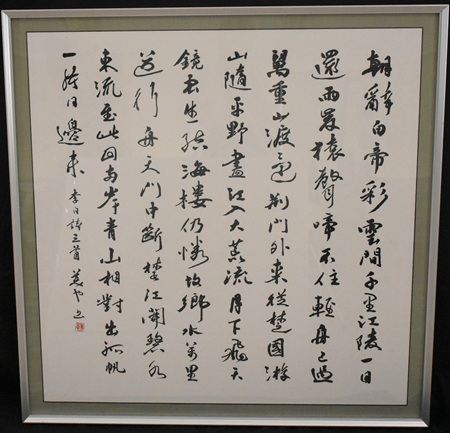 朝辭白帝彩雲間千里江陵一日
還兩岸猿聲啼不住輕舟已過
萬重山渡遠荊門外來從楚國游
山隨平野盡江入大荒流月下飛天
鏡雲生結海樓仍憐故鄉水萬里
送行舟天門中斷楚江開碧水
東流至此回兩岸青山相對出孤帆
一片日邊來 李白詩三首